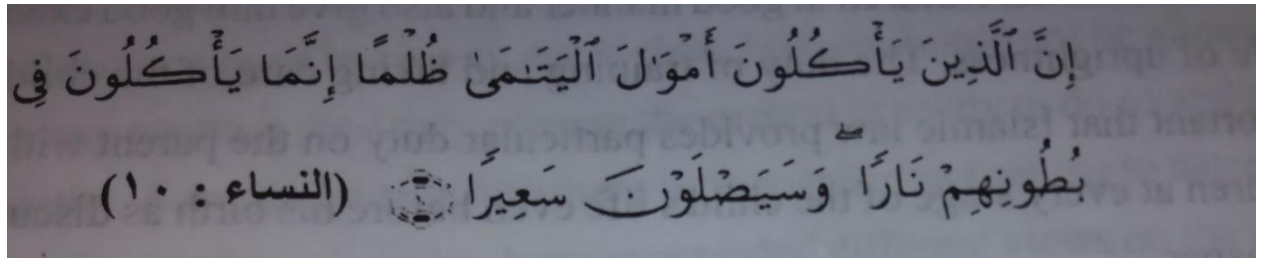 إِنَّ ٱلَّذِينَ يَأْكُلُونَ أَمْوَٰلَ ٱلْيَتَـٰمَى ظُلْمًا إِنَّمَا يَأْكُلُونَ فِى
بُطُونِهِمْ نَارًا ۖ وَسَيَصْلَوْنَ سَعِيرًا ۝ (النساء : ١٠)